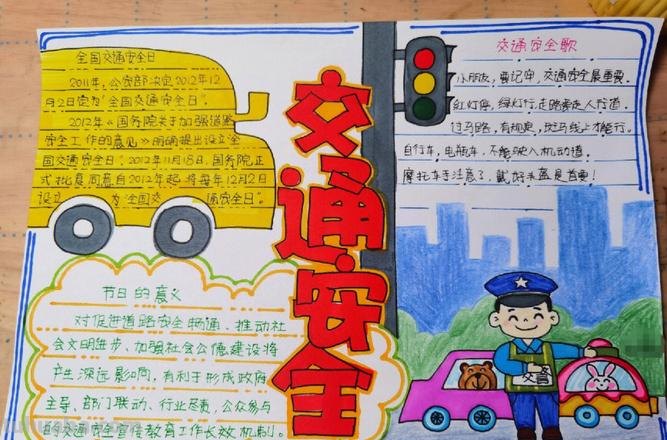 全国交通安全日
2011年，公安部决定2012年12
月2日定为“全国交通安全日”。
2012年《国务院关于加强道路
安全工作的意见》明确提出设立全
国交通安全日。2012年11月18日，国务院正
式批复同意自2012年起将每年12月2日
设立 为“全国交 通安全日”。
交通安全
交通安全歌
小朋友，要记牢，交通安全最重要。
红灯停，绿灯行，走路要走人行道。
过马路，有规定，斑马线上才能行。
自行车，电瓶车，不能驶入机动道。
摩托车手注意了，戴好头盔是首要！
节日的意义
对促进道路安全畅通、推动社
会文明进步、加强社会公德建设将
产生深远影响，有利于形成政府
主导、部门联动、行业尽责，公众参与
的交通安全宣传教育工作长效机制。
交警